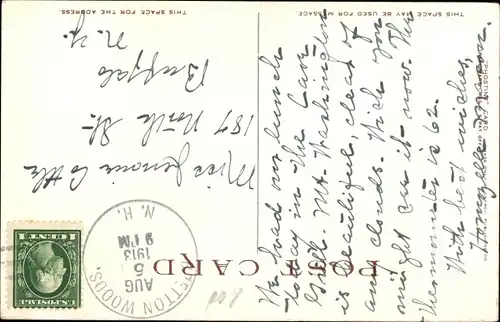 THIS SPACE MAY BE USED FOR MESSAGE.
THIS SPACE FOR THE ADDRESS.
POST CARD
We had our lunch
today in the Cave
Grill. Mt. Washington
is beautiful, clear of
any clouds. Wish you
might see it now. The
thermometer is 62.
With best wishes,
BRETTON WOODS
AUG 5
9 PM
1913
N.H.
U.S. POSTAGE
1 CENT 1
Miss Jennie Cottle
187 North St.
Buffalo
N.Y.